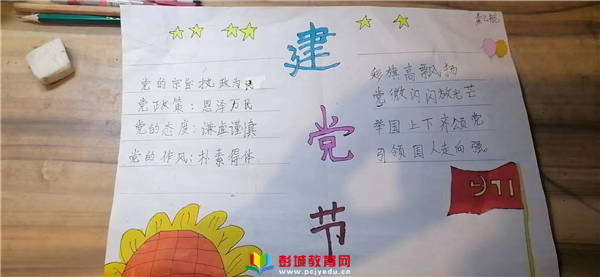 建
党
节
党的宗旨:执政为民
党政策:恩泽万民
党的态度:谦虚谨慎
党的作风:朴素得体
彩旗高飘扬
党微闪闪放光芒
举国上下齐颂党
引领国人走向强
71
彭城教育网
www.pcjyedu.cn